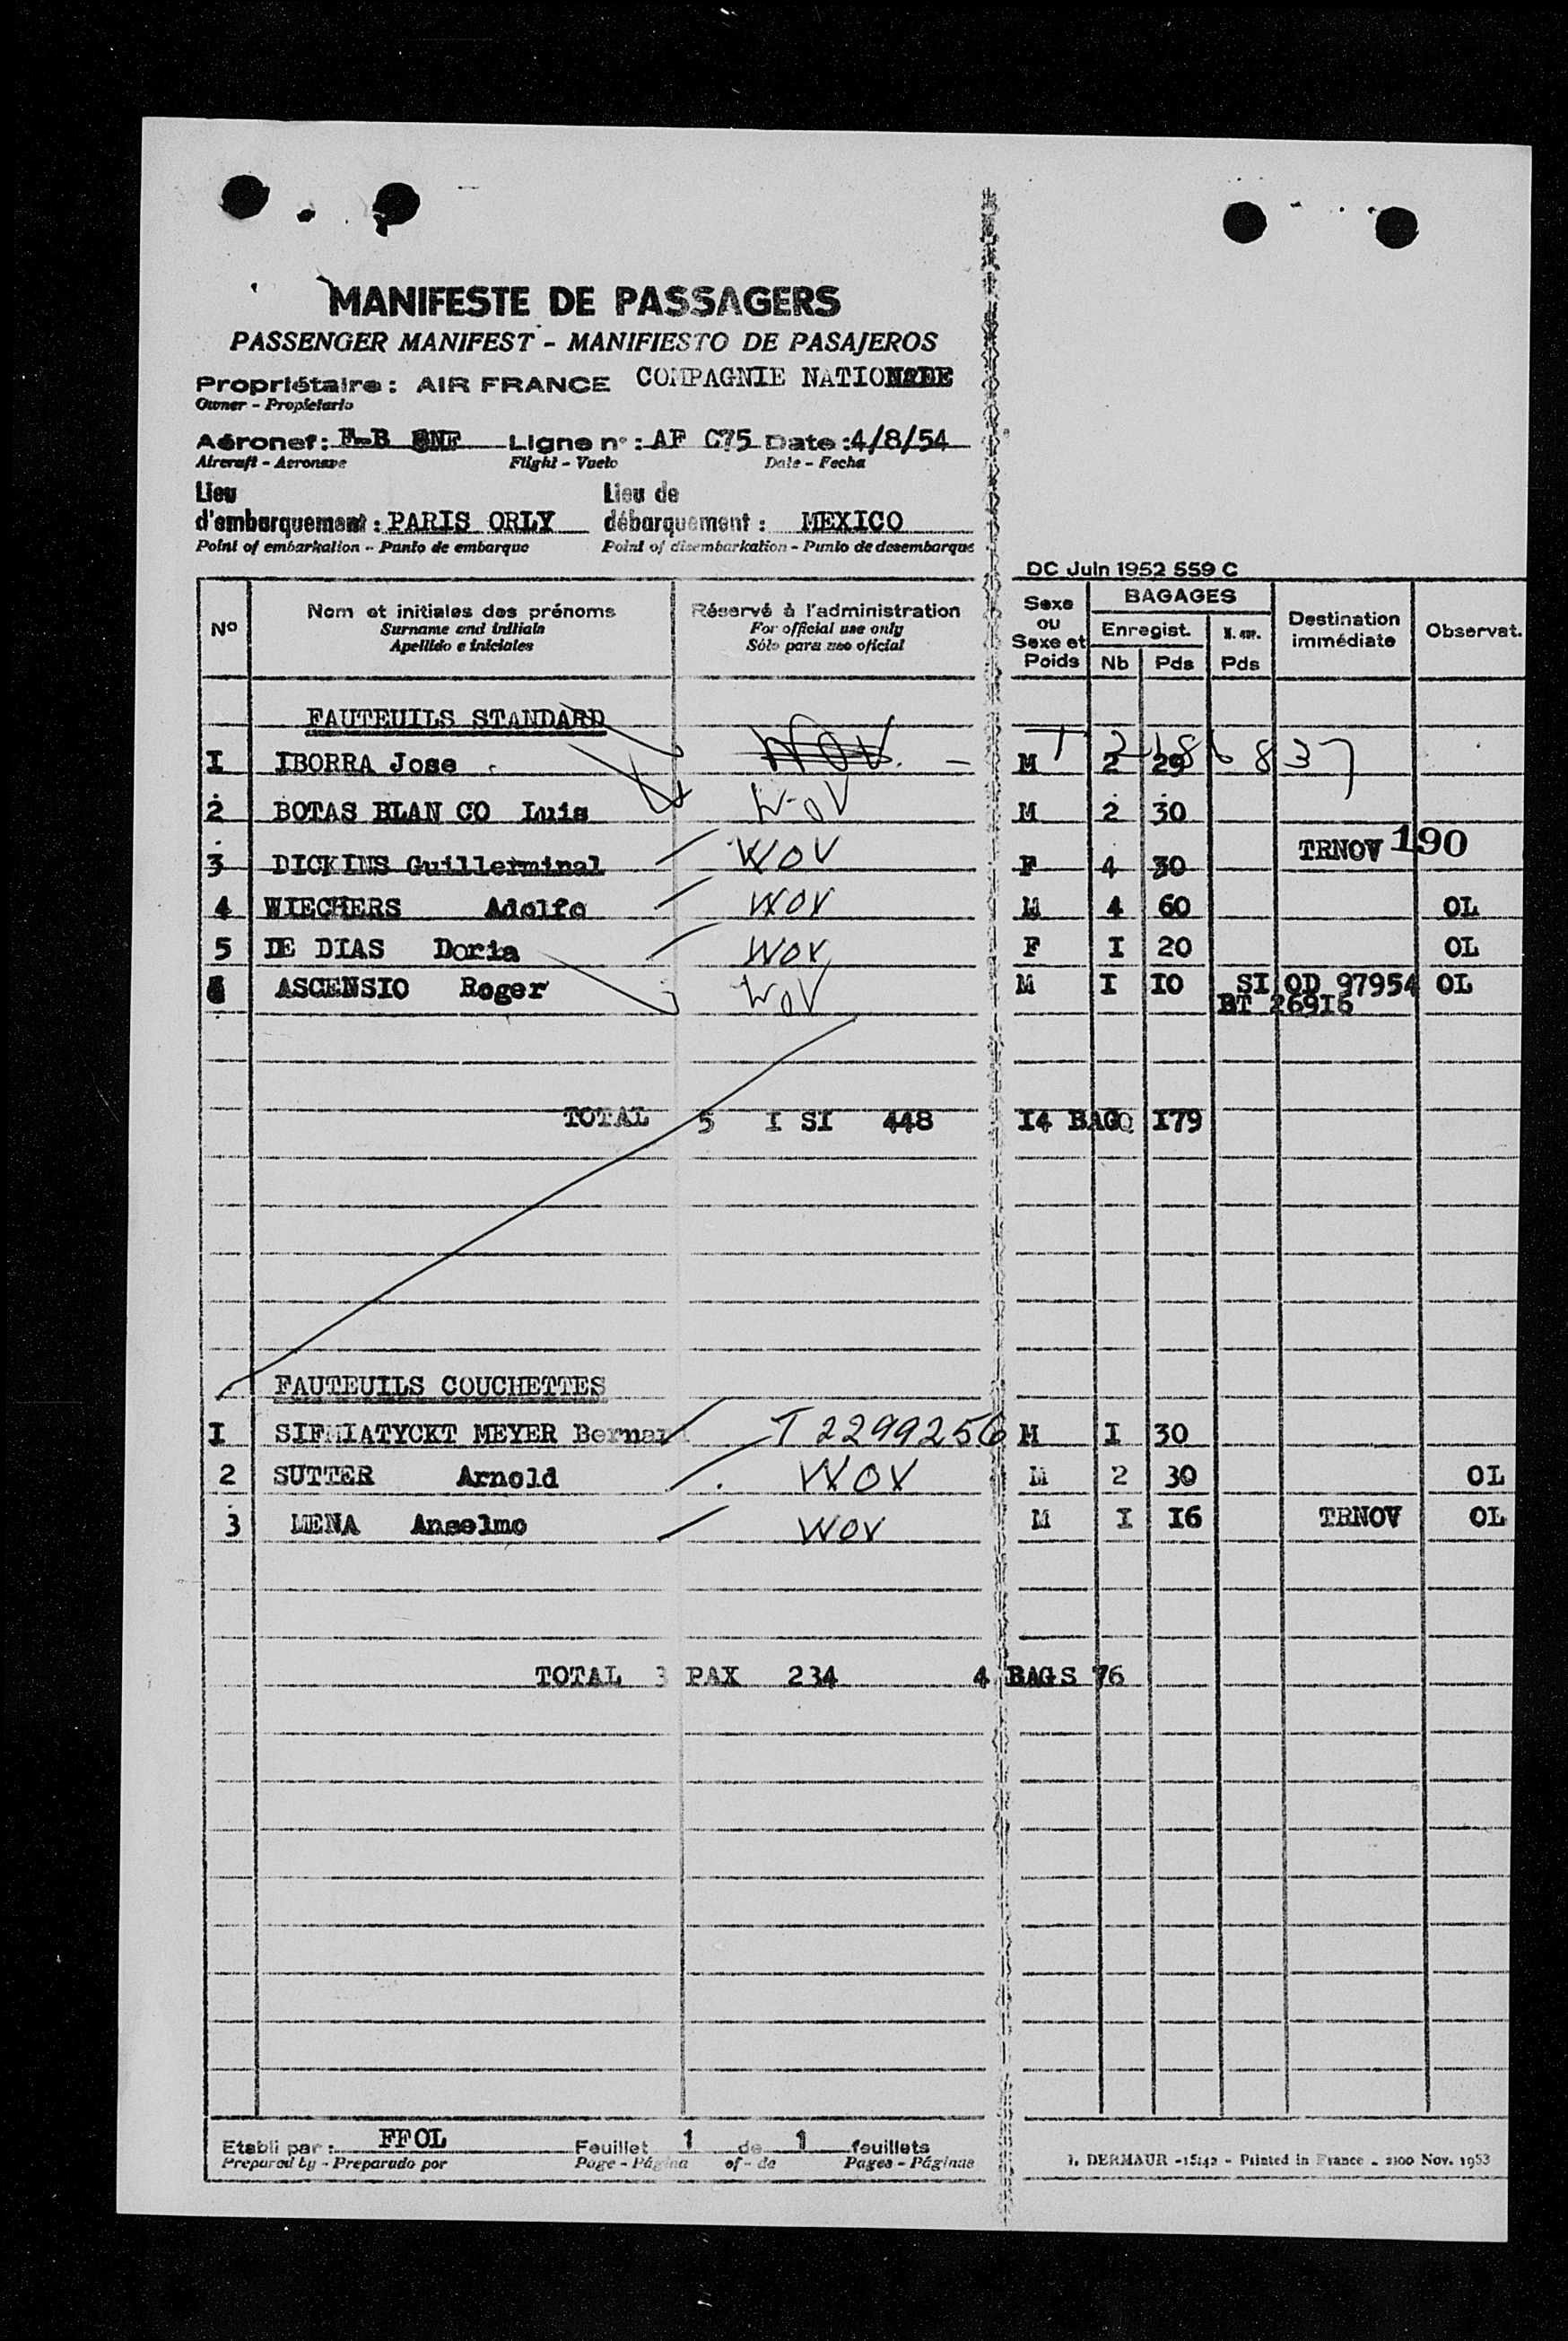 MANIFESTE DE PASSAGERS
PASSENGER MANIFEST - MANIFIESTO DE PASAJEROS
Propriétaire : AIR FRANCE COMPAGNIE NATIONALE
Owner - Propietario
Aéronef : F-B Ligne n° : AF 075 Date : 4/8/54
Aircraft - Aeronave Flight - Vuelo Date - Fecha
Lieu Lieu de
d'embarquement : PARIS ORLY débarquement : MEXICO
Point of embarkation - Punto de embarque Point of disembarkation - Punto de desembarque
DC Juin 1952 559 C
Nº Nom et initiales des prénoms Réservé à l'administration Sexe ou Sexe et Poids BAGAGES Destination immédiate Observat.
Surname and initials For official use only Enregist. N. enr.
Apellido e iniciales Sólo para uso oficial Nb Pds Pds
FAUTEUILS STANDARD
I IBORRA Jose WOV. M 2 29 T 2186837
2 BOTAS BLAN CO Luis WOV M 2 30
3 DICKINS Guillerminal WOV F 4 30 TRNOV 190
4 WIECHERS Adolfo WOV M 4 60 OL
5 DE DIAS Doria WOV F I 20 OL
6 ASCENSIO Roger WOV M I IO SI OD 97954 OL
BT 269I6
TOTAL 5 I SI 448 I4 BAGQ I79
FAUTEUILS COUCHETTES
I SIFMIATYCKT MEYER Bernar T 2299256 M I 30
2 SUTTER Arnold WOV M 2 30 OL
3 MENA Anselmo WOV M I I6 TRNOV OL
TOTAL 3 PAX 234 4 BAGS 76
Etabli par : FFOL Feuillet 1 de 1 feuillets
Prepared by - Preparado por Page - Página of - de Pages - Páginas
DERMAUR - 15142 - Printed in France - 2100 Nov. 1953